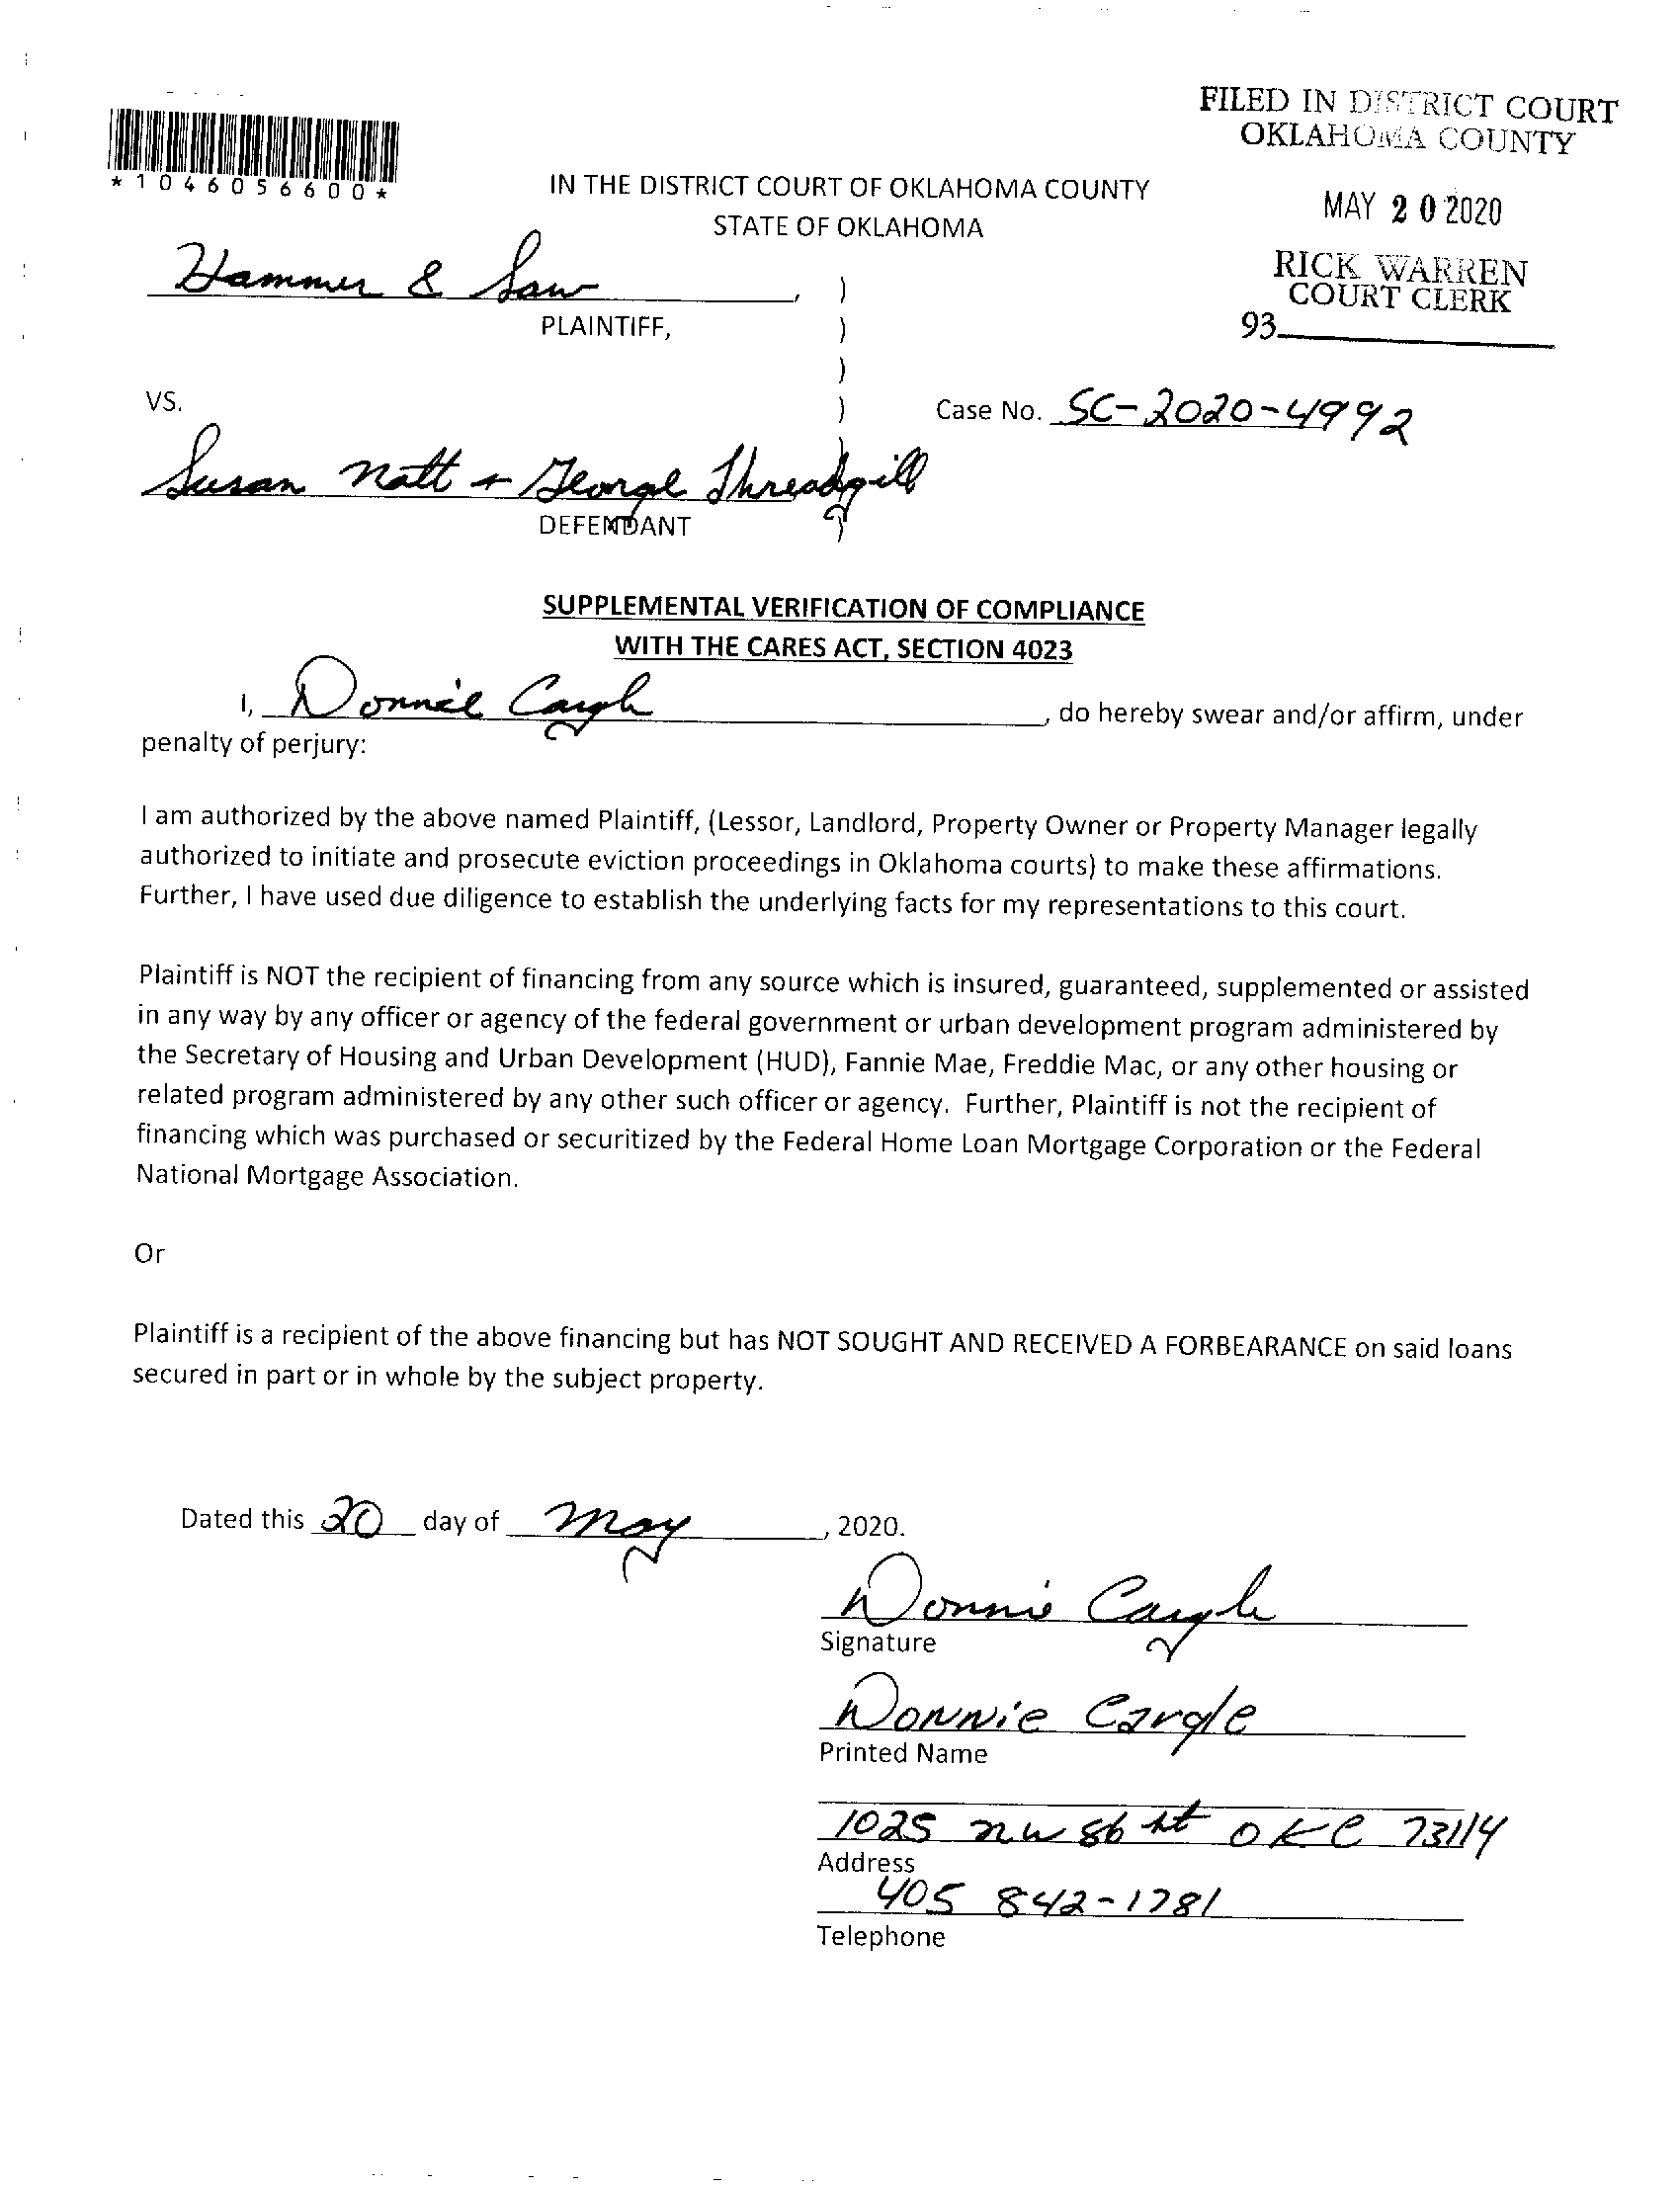 FILED IN DISTRICT COURT
OKLAHOMA COUNTY
*1046056600*
IN THE DISTRICT COURT OF OKLAHOMA COUNTY
STATE OF OKLAHOMA
MAY 20 2020
RICK WARREN
COURT CLERK
93
Hammer & Saw , )
PLAINTIFF, )
)
VS. )
Case No. SC-2020-4992
Susan Natt + George Threadgill
DEFENDANT )
SUPPLEMENTAL VERIFICATION OF COMPLIANCE
WITH THE CARES ACT, SECTION 4023
I, Donnie Cargle , do hereby swear and/or affirm, under
penalty of perjury:
I am authorized by the above named Plaintiff, (Lessor, Landlord, Property Owner or Property Manager legally
authorized to initiate and prosecute eviction proceedings in Oklahoma courts) to make these affirmations.
Further, I have used due diligence to establish the underlying facts for my representations to this court.
Plaintiff is NOT the recipient of financing from any source which is insured, guaranteed, supplemented or assisted
in any way by any officer or agency of the federal government or urban development program administered by
the Secretary of Housing and Urban Development (HUD), Fannie Mae, Freddie Mac, or any other housing or
related program administered by any other such officer or agency. Further, Plaintiff is not the recipient of
financing which was purchased or securitized by the Federal Home Loan Mortgage Corporation or the Federal
National Mortgage Association.
Or
Plaintiff is a recipient of the above financing but has NOT SOUGHT AND RECEIVED A FORBEARANCE on said loans
secured in part or in whole by the subject property.
Dated this 20 day of May , 2020.
Donnie Cargle
Signature
Donnie Cargle
Printed Name
1025 nw 86 st OKC 73114
Address
405 842-1781
Telephone